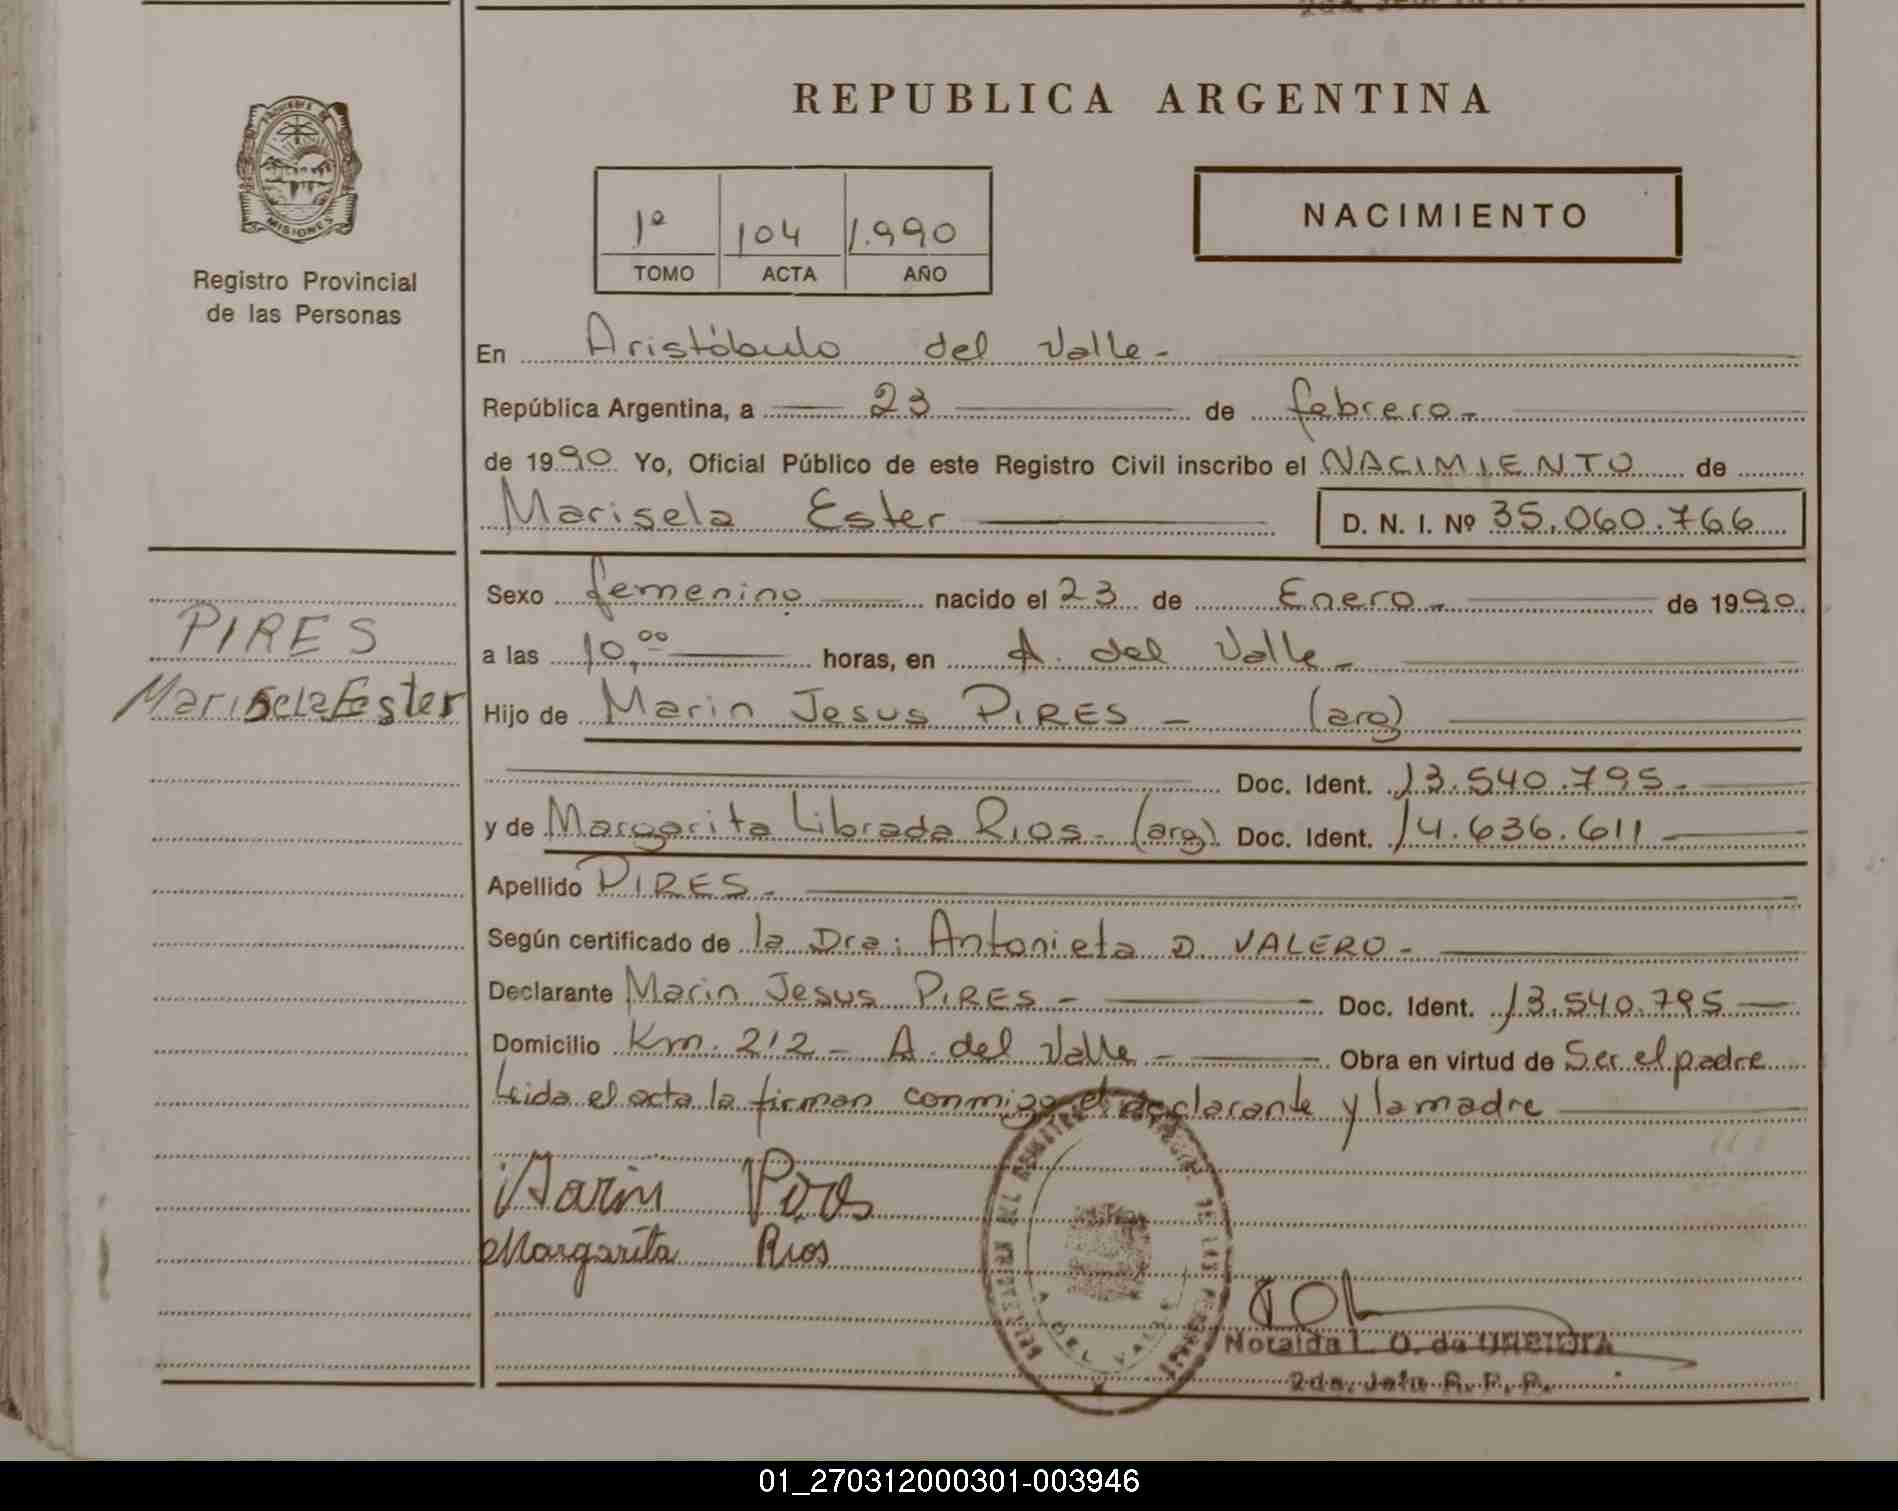 REPUBLICA ARGENTINA
MISIONES
Registro Provincial
de las Personas
1º 104 1.990
TOMO ACTA AÑO
NACIMIENTO
En Aristóbulo del Valle-
República Argentina, a 23 de febrero-
de 1990 Yo, Oficial Público de este Registro Civil inscribo el NACIMIENTO de
Marisela Ester D. N. I. Nº 35.060.766
PIRES
Marisela Ester
Sexo femenino nacido el 23 de Enero- de 1990
a las 10,00 horas, en A. del Valle-
Hijo de Marin Jesus PIRES - (arg)
Doc. Ident. 13.540.795-
y de Margarita Librada Rios- (arg) Doc. Ident. 14.636.611
Apellido PIRES-
Según certificado de la Dra: Antonieta D. VALERO-
Declarante Marin Jesus PIRES - Doc. Ident. 13.540.795
Domicilio Km. 212 - A. del Valle - Obra en virtud de Ser el padre
Leida el acta la firman conmigo el declarante y la madre
Marin
Margarita Rios
DEL VALLE
Noraida L. O. de
2da. Jefa R. P. P.
01_270312000301-003946